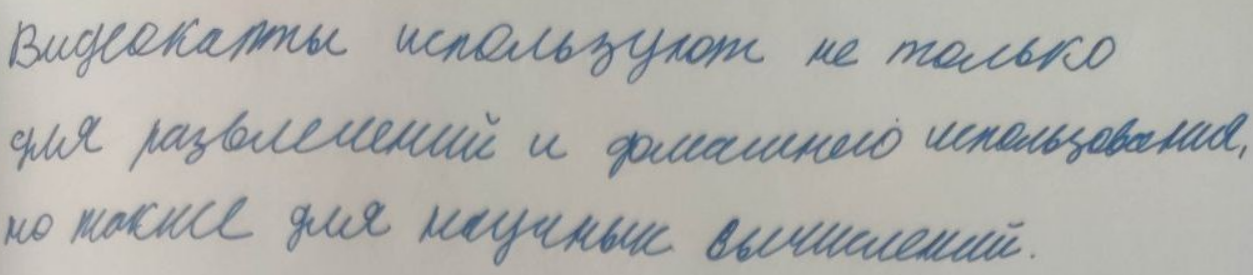 Видеокарты используют не только
для развлечений и домашнего использования,
но также для научных вычислений.